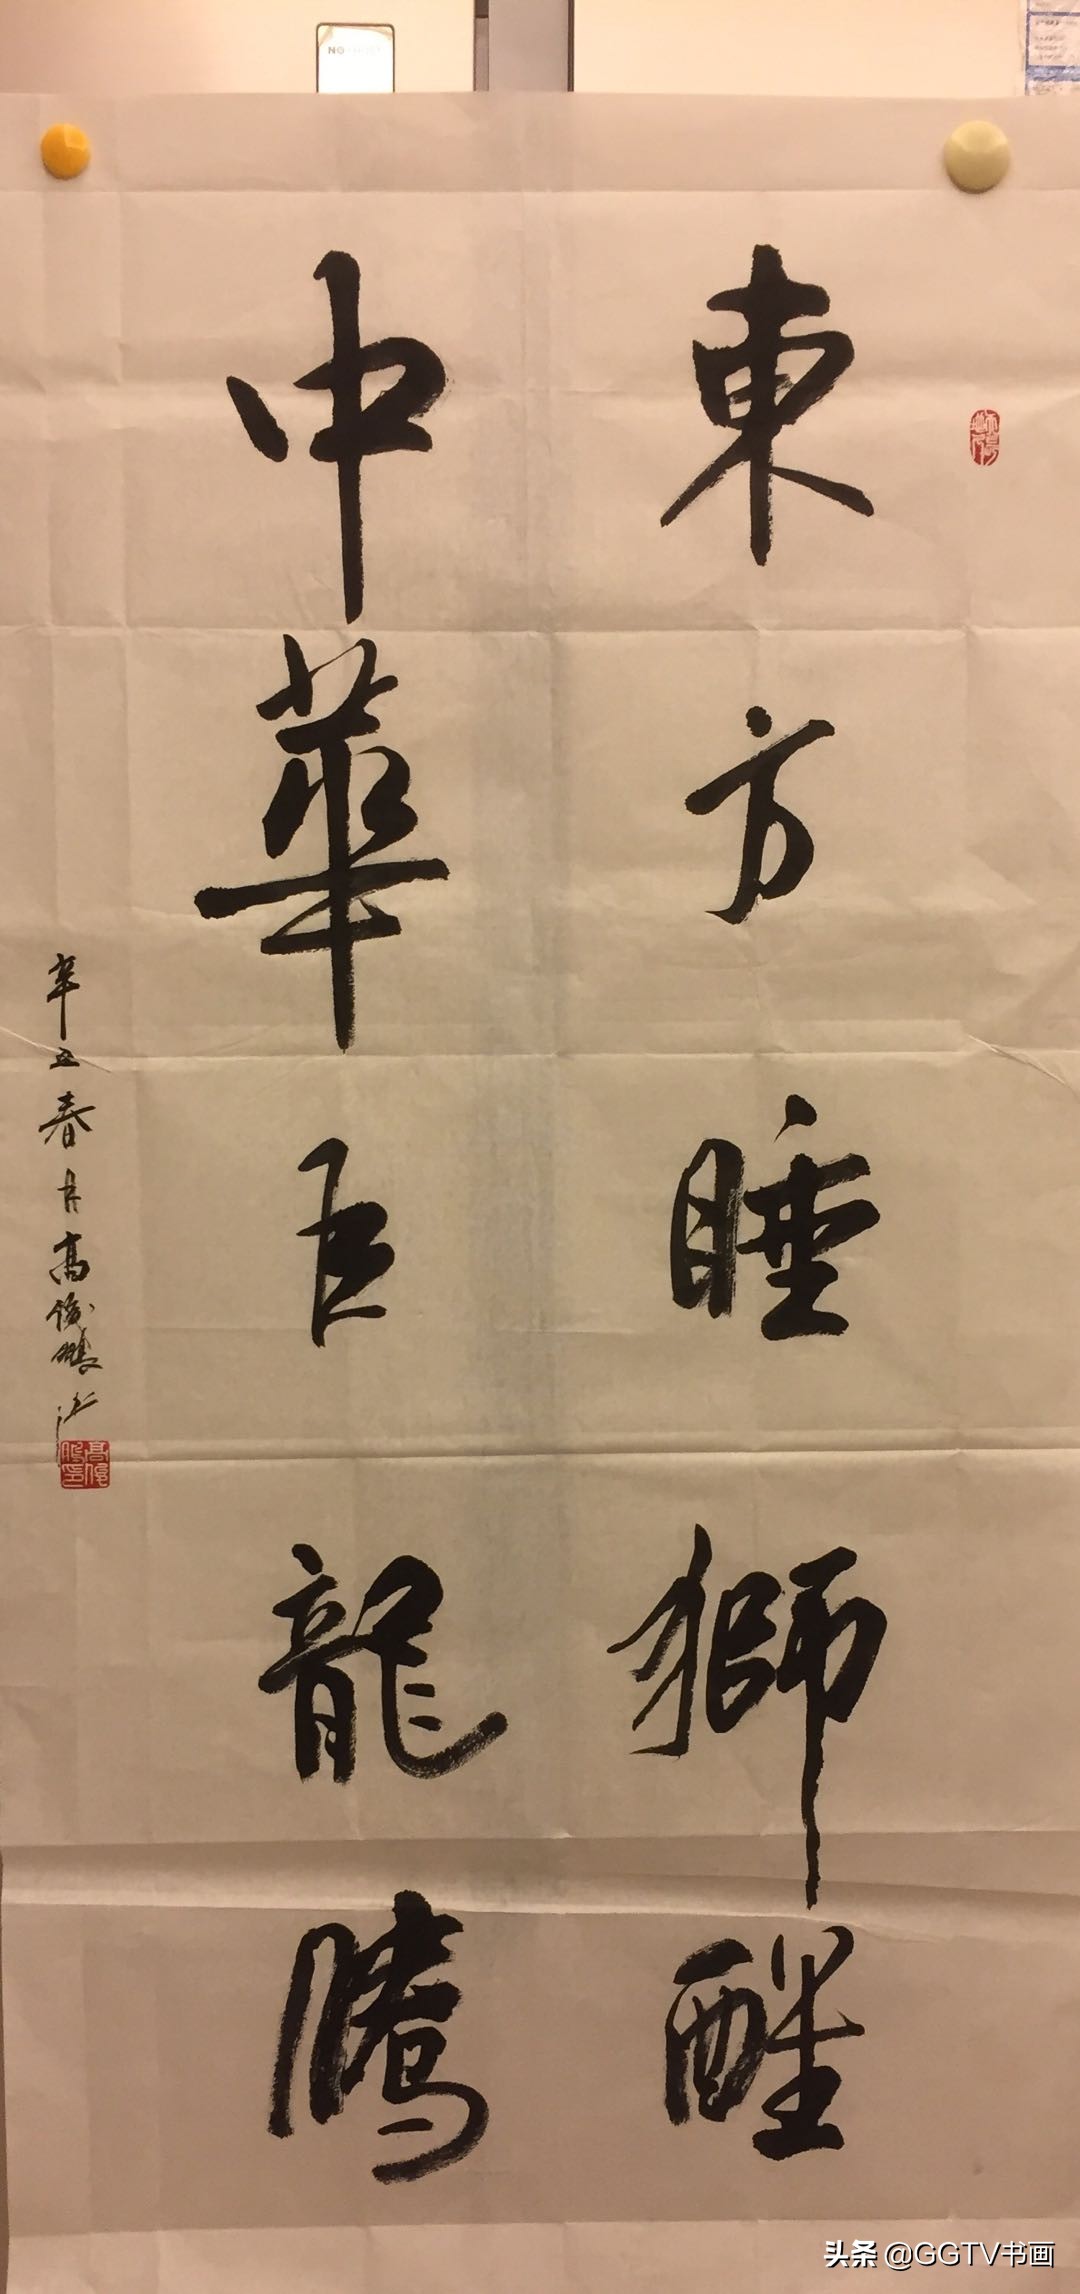 東方睡獅醒
中華巨龍騰
辛丑春月高俊鵬书
高俊鵬印
头条 @GGTV书画